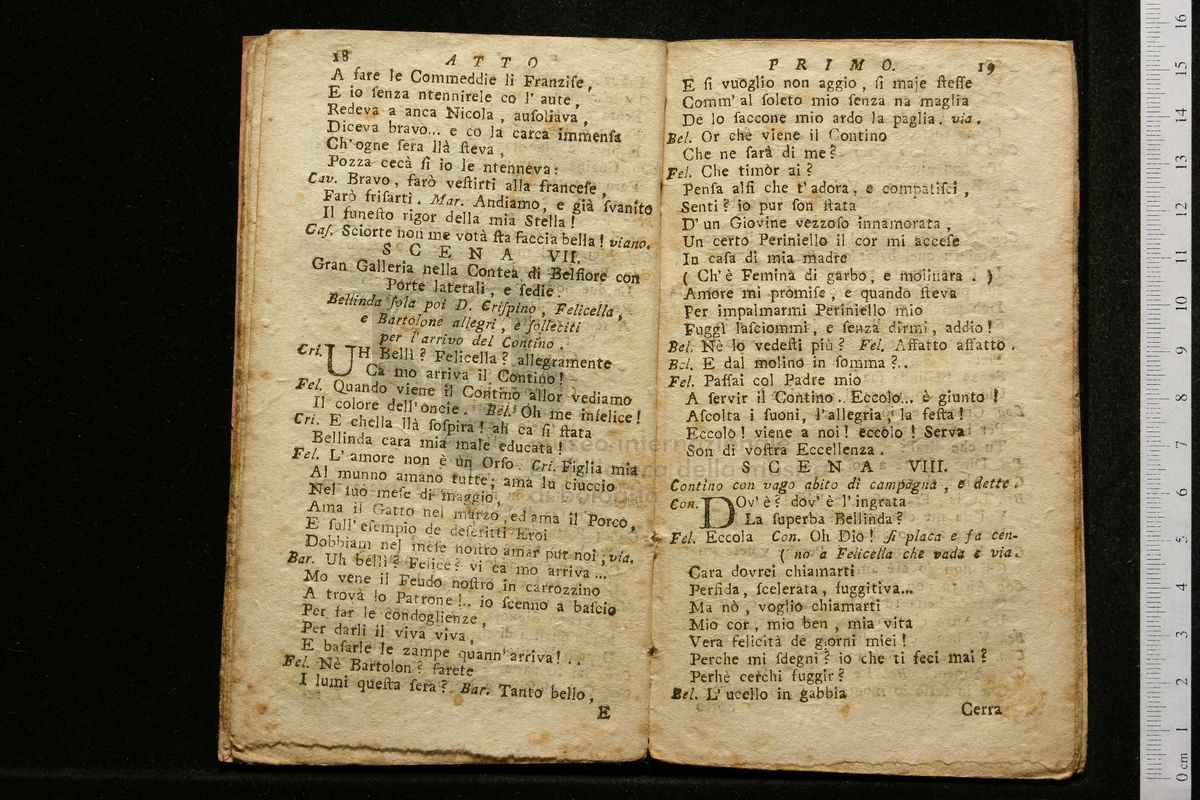 18 ATTO
A fare le Commeddie li Franziſe,
E io ſenza ntennirele co l' aute,
Redeva a anca Nicola, auſoliava,
Diceva bravo... e co la carca immenſa
Ch' ogne ſera llà ſteva,
Pozza cecà ſi io le ntenneva:
Cav. Bravo, farò veſtirti alla franceſe,
Farò friſarti. Mar. Andiamo, e già ſvanito
Il funeſto rigor della mia Stella!
Caſ. Sciorte non me votà ſta faccia bella! viano.
SCENA VII.
Gran Galleria nella Contea di Belfiore con
Porte laterali, e ſedie.
Bellinda ſola poi D. Criſpino, Felicella,
e Bartolone allegri, e ſolleciti
per l'arrivo del Contino.
Cri. UH Bellì? Felicella? allegramente
Ca mo arriva il Contino!
Fel. Quando viene il Contino allor vediamo
Il colore dell'oncie. Bel. Oh me infelice!
Cri. E chella llà ſoſpira! ah ca ſi ſtata
Bellinda cara mia male educata!
Fel. L' amore non è un Orſo. Cri. Figlia mia
Al munno amano tutte; ama lu ciuccio
Nel ſuo meſe di maggio,
Ama il Gatto nel marzo, ed ama il Porco,
E full' eſempio de deſcritti Eroi
Dobbiam nel meſe noſtro amar pur noi, via.
Bar. Uh bellì? Felice? vi ca mo arriva...
Mo vene il Feudo noſtro in carrozzino
A trovà lo Patrone!.. io ſcenno a baſcio
Per far le condoglienze,
Per darli il viva viva,
E baſarle le zampe quann' arriva!..
Fel. Nè Bartolon? farete
I lumi queſta ſera? Bar. Tanto bello,
E
PRIMO. 19
E ſi vuoglio non aggio, ſi maje ſteſſe
Comm' al ſoleto mio ſenza na maglia
De lo ſaccone mio ardo la paglia. via.
Bel. Or che viene il Contino
Che ne ſarà di me?
Fel. Che timòr ai?
Penſa alfi che t' adora, e compatiſci,
Senti? io pur ſon ſtata
D' un Giovine vezzoſo innamorata,
Un certo Periniello il cor mi acceſe
In caſa di mia madre
( Ch' è Femina di garbo, e molinara. )
Amore mi pròmiſe, e quando ſteva
Per impalmarmi Periniello mio
Fuggì laſciommi, e ſenza dirmi, addio!
Bel. Nè lo vedeſti più? Fel. Affatto affatto.
Bel. E dal molino in ſomma?..
Fel. Paſſai col Padre mio
A ſervir il Contino.. Eccolo... è giunto!
Aſcolta i ſuoni, l'allegria, la feſta!
Eccolò! viene a noi! eccòlo! Serva
Son di voſtra Eccellenza.
SCENA VIII.
Contino con vago abito di campagna, e dette.
Con. DOv' è? dov' è l' ingrata
La ſuperba Bellinda?
Fel. Eccola Con. Oh Dio! ſi placa e fa cen-
( no a Felicella che vada e via.
Cara dovrei chiamarti
Perfida, ſcelerata, fuggitiva...
Ma nò, voglio chiamarti
Mio cor, mio ben, mia vita
Vera felicità de giorni miei!
Perche mi ſdegni? io che ti feci mai?
Perhè cerchi fuggir?
Bel. L' ucello in gabbia
Cerra
0 cm 1 2 3 4 5 6 7 8 9 10 11 12 13 14 15 16